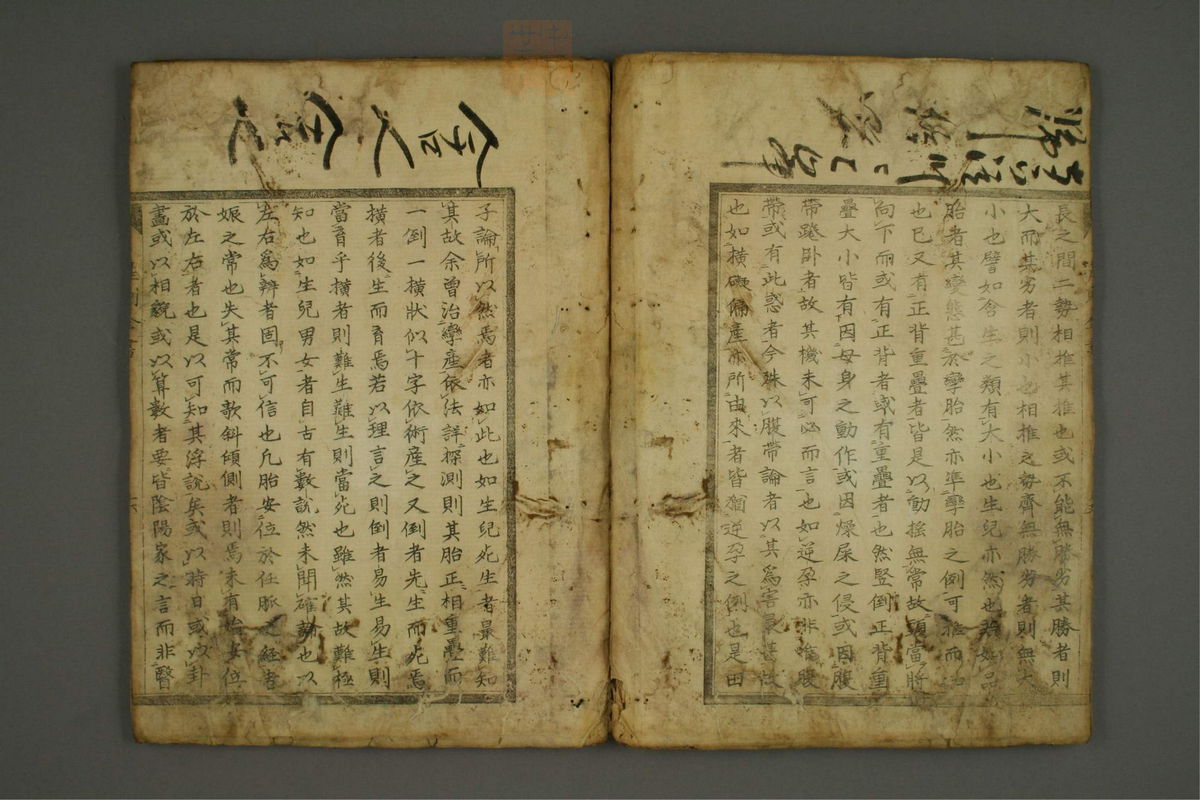 長之間二勢相推其推也或不能無勝劣其勝者則
大而其劣者則小也相推之勢齊無勝劣者則無大
小也譬如含生之類有大小也生兒亦然也若如品
胎者其變態甚於孿胎然亦準孿胎之例可推而知
也巳又有正背重疊者皆是以動搖無常故頭當將
向下而或有正背者或有重疊者也然豎倒正背重
疊大小皆有因母身之動作或因燥屎之侵或因腹
帶踡卧者故其機未可必而言也如逆孕亦非唯腹
帶或有此惑者今殊以腹帶論者以其爲害最甚故
也如横礙偏產亦所由來者皆猶逆孕之例也是由
子論所以然焉者亦如此也如生兒死生者最難知
其故余曾治孿產依法詳探測則其胎正相重疊而
一倒一横狀似十字依術產之又倒者先生而死焉
横者後生而育焉若以理言之則倒者易生易生則
當育乎横者則難生難生則當死也雖然其故難極
知也如生兒男女者自古有數說然未聞確論也以
左右爲辨者固不可信也凡胎安位於任脈之經者
娠之常也失其常而欹斜傾側者則焉未有始安位
於左右者也是以可知其浮說矣或以時日或以卦
畵或以相貌或以算數者要皆陰陽家之言而非醫